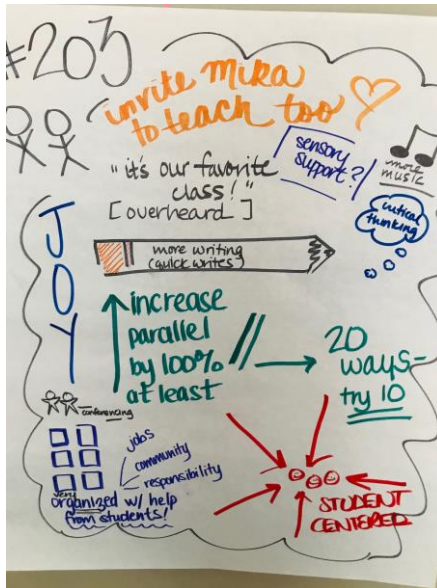 #203
invite mika
to teach too
"it's our favorite
class!"
[overheard]
sensory
support?
more
music
critical
thinking
JOY
more writing
(quick writes)
increase
parallel
by 100%
at least
20
ways-
try 10
conferencing
jobs
community
responsibility
very
organized w/ help
from students!
STUDENT
CENTERED